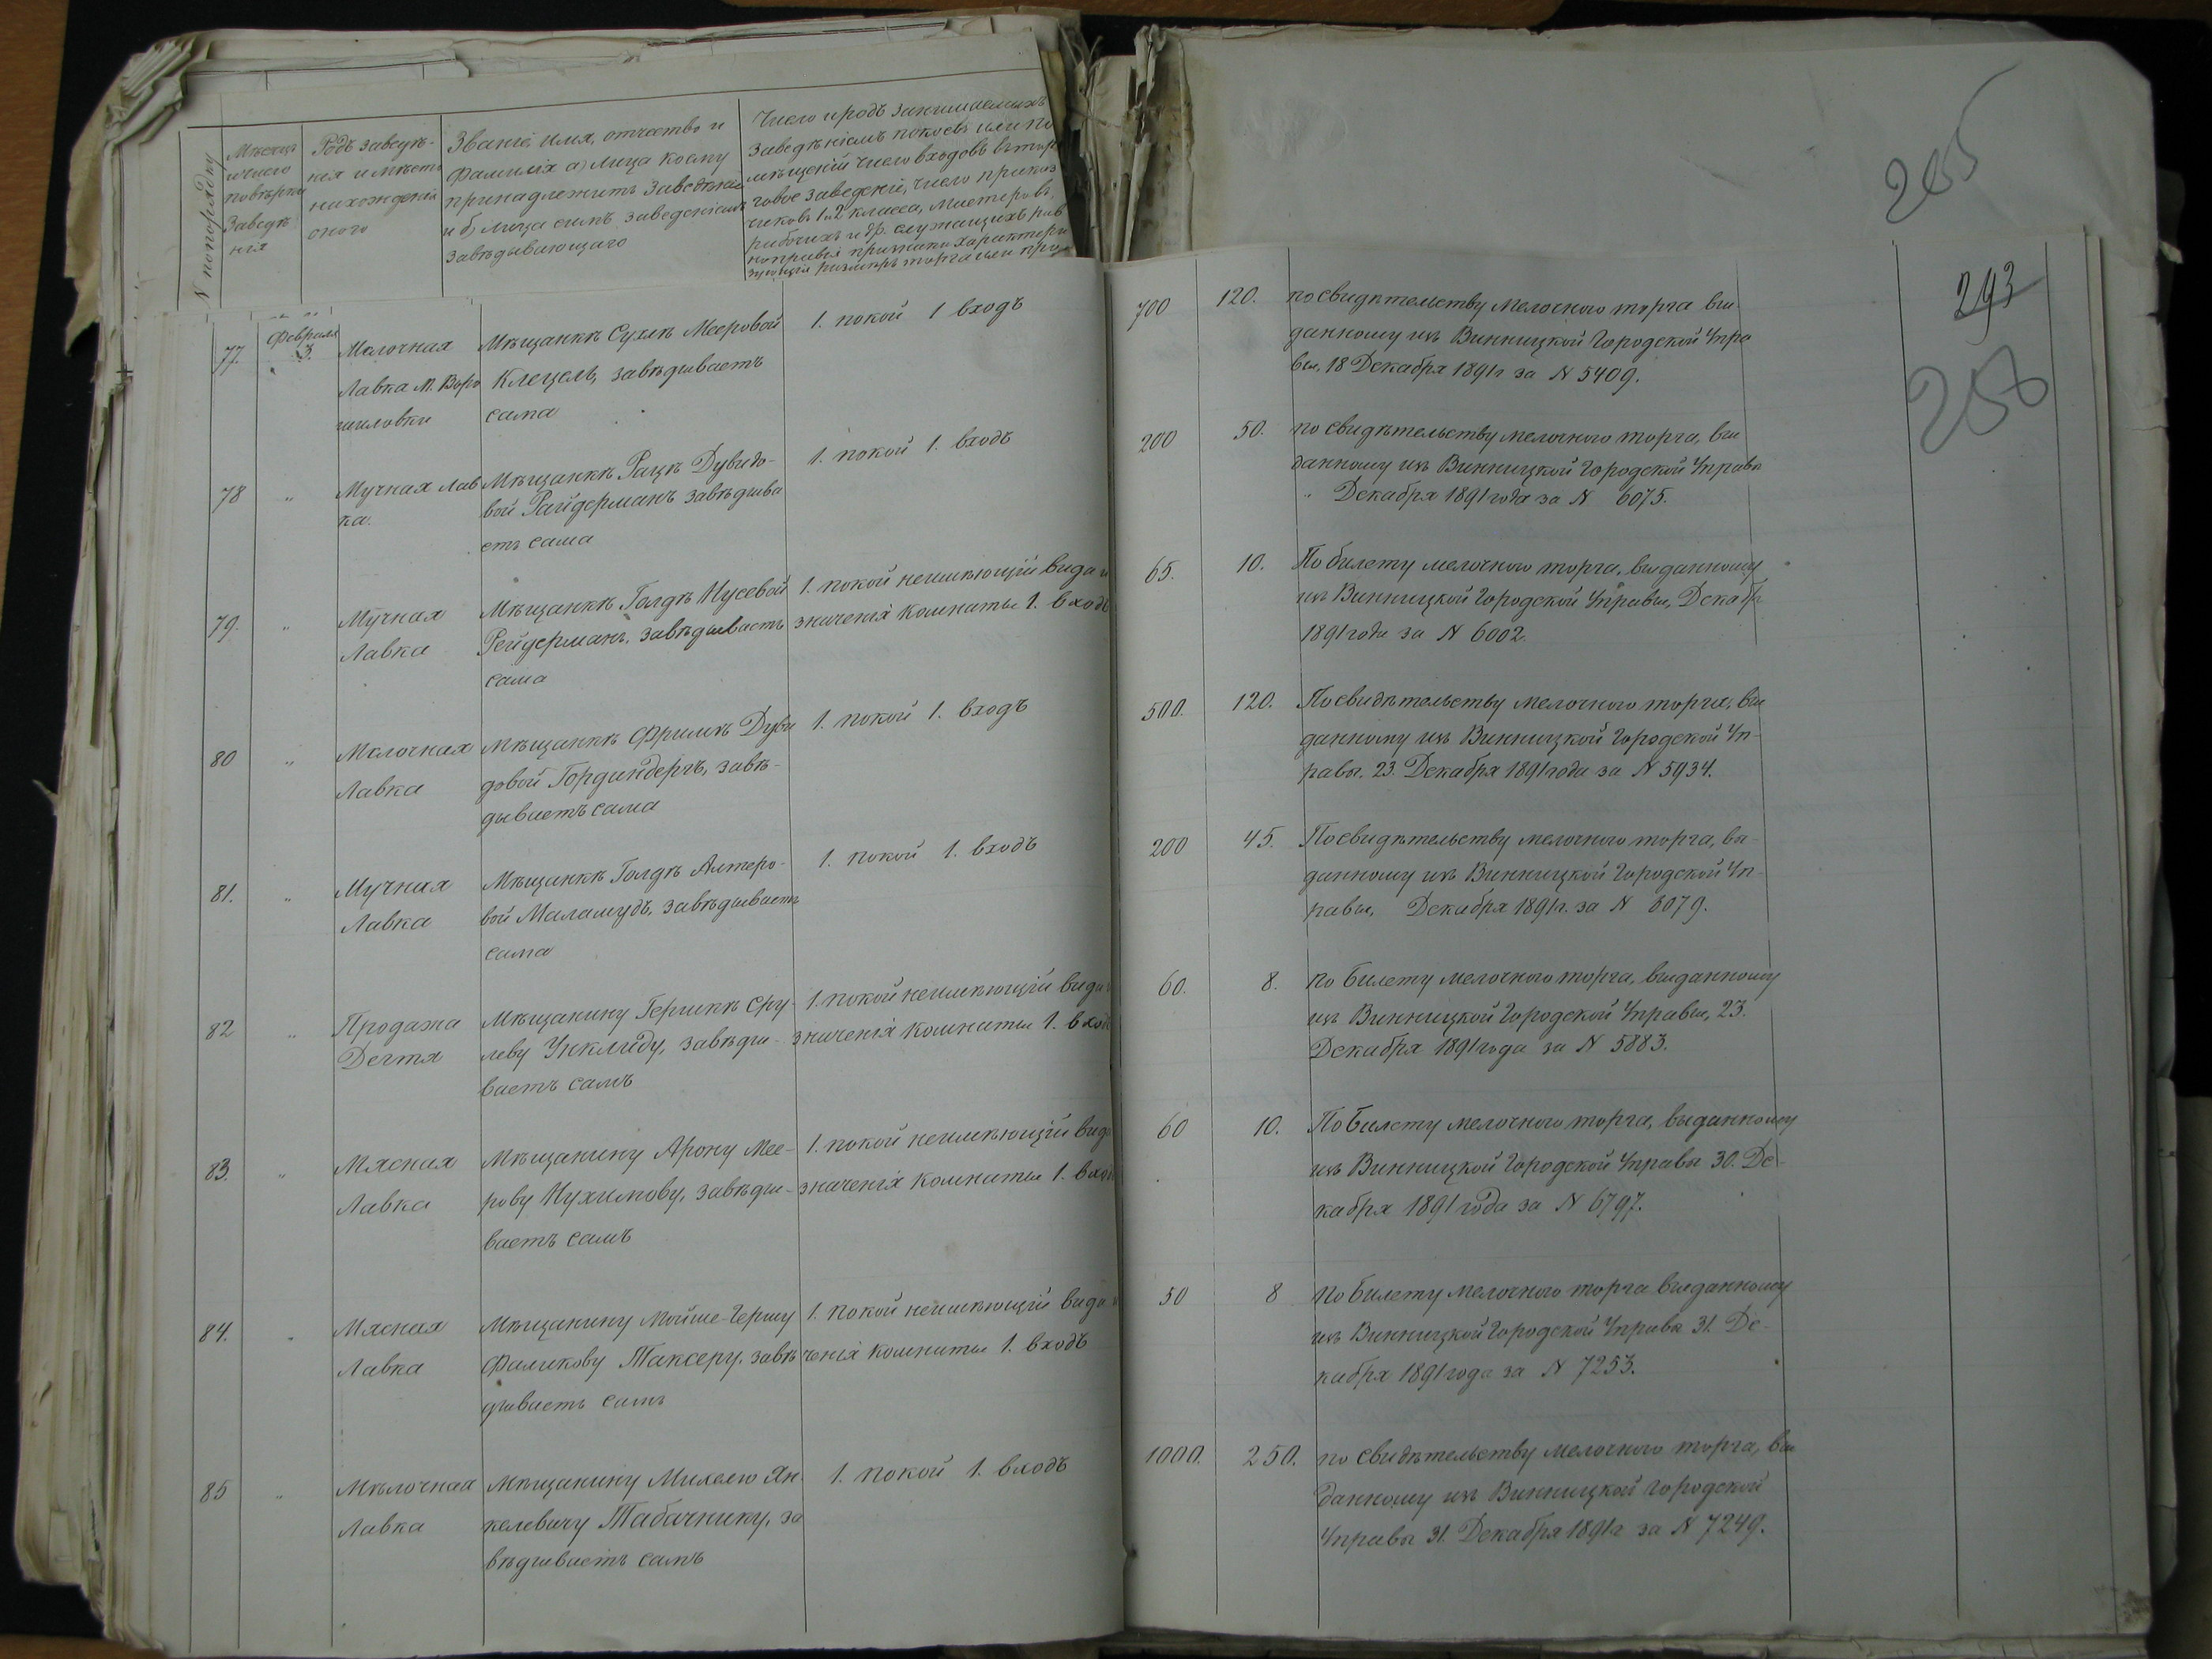 № по порядку
Мѣсяцъ
и число
повѣрки
Заведе
нія
Родъ заведе-
нія и мѣсто
нахожденія
оного
Званіе, имя, отчество и
фамилія а) лица коему
принадлежитъ заведеніе
и б) лица симъ заведеніемъ
завѣдывающаго
Число и родъ занимаемыхъ
заведеніемъ покоевъ или по
мѣщеній число входовъ въ тор
говое заведеніе, число приказ
чиковъ 1 и 2 класса, мастеровъ,
рабочихъ и др. служащихъ
77.
Февраля
3.
Мелочная
Лавка М. Воро
шиловки
Мѣщанкѣ Сухлѣ Мееровой
Клецель, завѣдываетъ
сама
1. покой 1 входъ
78
"
Мучная лав
ка.
Мѣщанкѣ Рацѣ Дувидо-
вой Райдерманъ завѣдыва
етъ сама
1. покой 1. входъ
79.
"
Мучная
Лавка
Мѣщанкѣ Голдѣ Нусевой
Рейдерманъ, завѣдываетъ
сама
1. покой неимѣющій вида и
значенія комнаты 1. входъ
80
"
Мелочная
Лавка
Мѣщанкѣ Фримѣ Дуви
довой Гордындеръ, завѣ-
дываетъ сама
1. покой 1. входъ
81.
"
Мучная
Лавка
Мѣщанкѣ Голдѣ Алтеро-
вой Маламудъ, завѣдываетъ
сама
1. покой 1. входъ
82
"
Продажа
Дегтя
Мѣщанину Гершкѣ Сру-
леву Унклиду, завѣды-
ваетъ самъ
1. покой неимѣющій вида и
значенія комнаты 1. входъ
83.
"
Мясная
Лавка
Мѣщанину Арону Мее-
рову Нухимову, завѣды-
ваетъ самъ
1. покой неимѣющій вида
значенія комнаты 1. входъ
84.
"
Мясная
Лавка
Мѣщанину Мойше-Гершу
Фаликову Таксеру, завѣ
дываетъ самъ
1. покой неимѣющій вида и
ченія комнаты 1. входъ
85
"
Мѣлочная
Лавка
Мѣщанину Михелю Ян-
келевичу Табачнику, за
вѣдываетъ самъ
1. покой 1. входъ
265
293
258
700
120.
по свидѣтельству мелочного торга вы-
данному изъ Винницкой Городской Упра
вы, 18 Декабря 1891 г за N 5409.
200
50.
по свидѣтельству мелочного торга, вы
данному изъ Винницкой Городской Управы
" Декабря 1891 года за N 6075.
65.
10.
По билету мелочного торга, выданному
изъ Винницкой Городской Управы, Декабр
1891 года за N 6002.
500.
120.
По свидѣтельству мелочного торга, вы
данному изъ Винницкой Городской Уп-
равы. 23. Декабря 1891 года за N 5934.
200
45.
По свидѣтельству мелочного торга, вы-
данному изъ Винницкой Городской Уп-
равы, Декабря 1891 г. за N 6079.
60.
8.
по билету мелочного торга, выданному
изъ Винницкой Городской Управы, 23.
Декабря 1891 года за N 5883.
60
10.
По билету мелочного торга, выданному
изъ Винницкой Городской Управы 30. Де-
кабря 1891 года за N 6797.
50
8
по билету мелочного торга выданному
изъ Винницкой Городской Управы 31. Де-
кабря 1891 года за N 7253.
1000.
250.
по свидѣтельству мелочного торга, вы
данному изъ Винницкой Городской
Управы 31. Декабря 1891 г за N 7249.